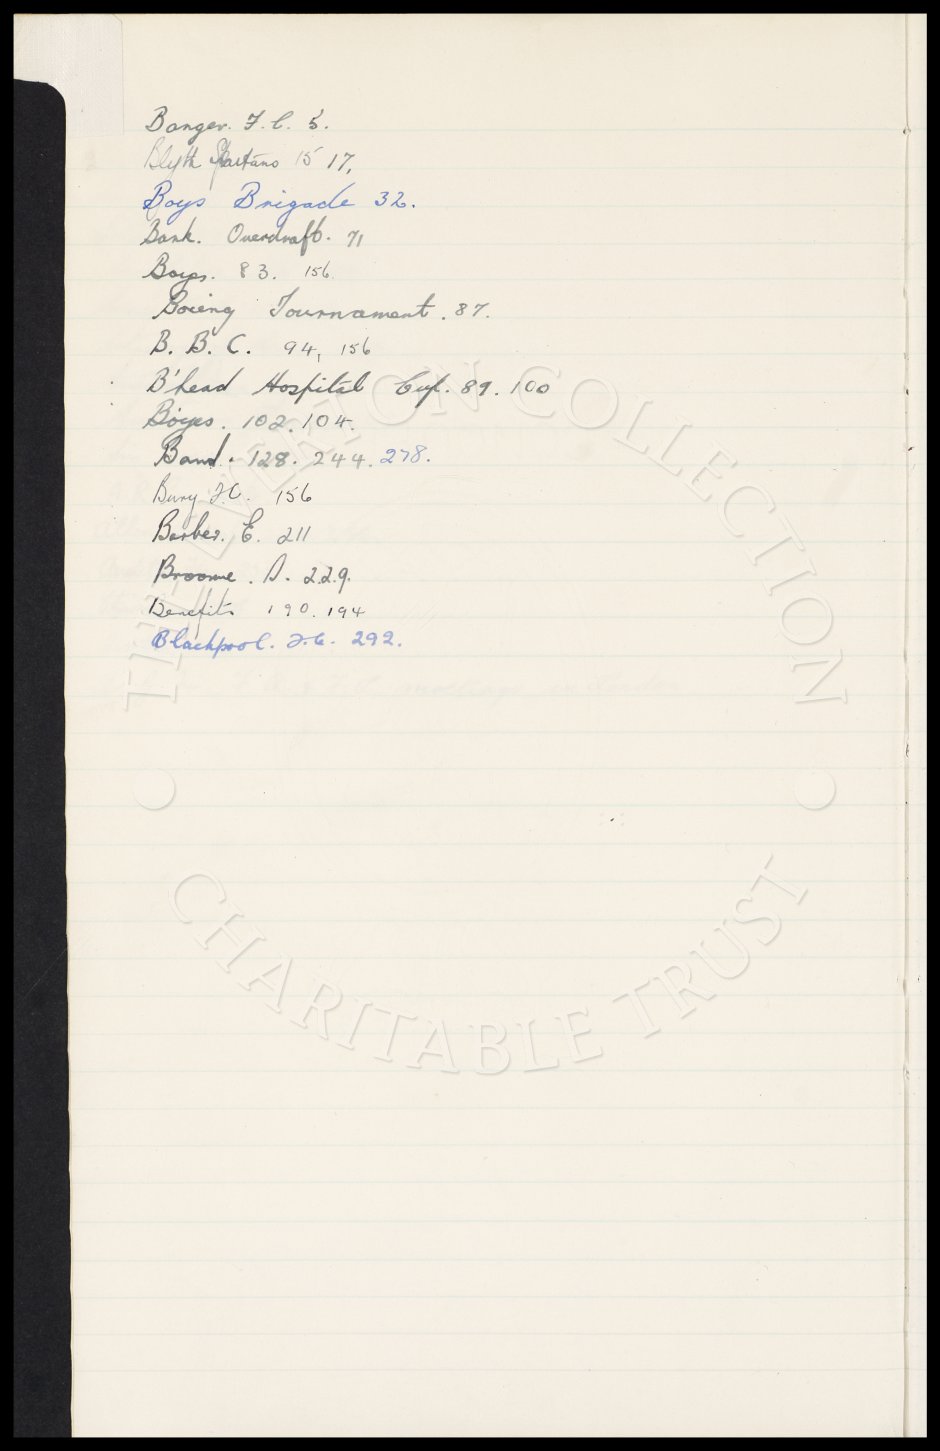 Bangor. F.C. 5.
Blyth Spartans 15 17,
Boys Brigade 32.
Bank. Overdraft. 71
Boyes. 83. 156
Boxing Tournament. 87.
B. B. C. 94, 156
B'head Hospital Cup. 89. 100
Boyes. 102. 104.
Band. 128. 244. 278.
Bury F.C. 156
Barber. E. 211
Broome. A. 229.
Benefits 190. 194
Blackpool. F.C. 292.
THE EVERTON COLLECTION
CHARITABLE TRUST